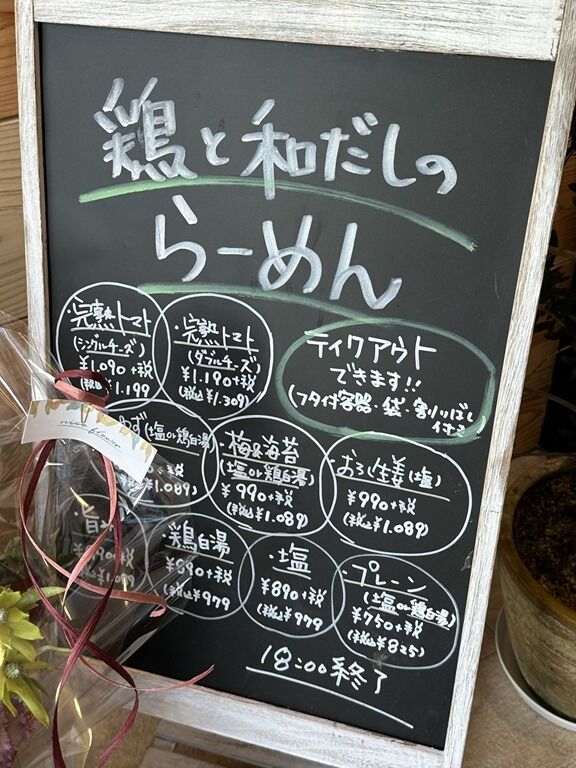 鶏と和だしの
らーめん
・完熟トマト
(シングルチーズ)
¥1.090+税
(税込¥1.199
・完熟トマト
(ダブルチーズ)
¥1.190+税
(税込¥1.309)
テイクアウト
できます!!
(フタ付容器・袋・割りばし
付き)
(塩or鶏白湯)
税
¥1.089)
・梅&海苔
(塩or鶏白湯)
¥990+税
(税込¥1.089)
・おろし生姜(塩)
¥990+税
(税込¥1.089)
・鶏白湯
¥890+税
(税込¥979
・塩
¥890+税
(税込¥979
・プレーン
(塩or鶏白湯)
¥750+税
(税込¥825)
18:00終了